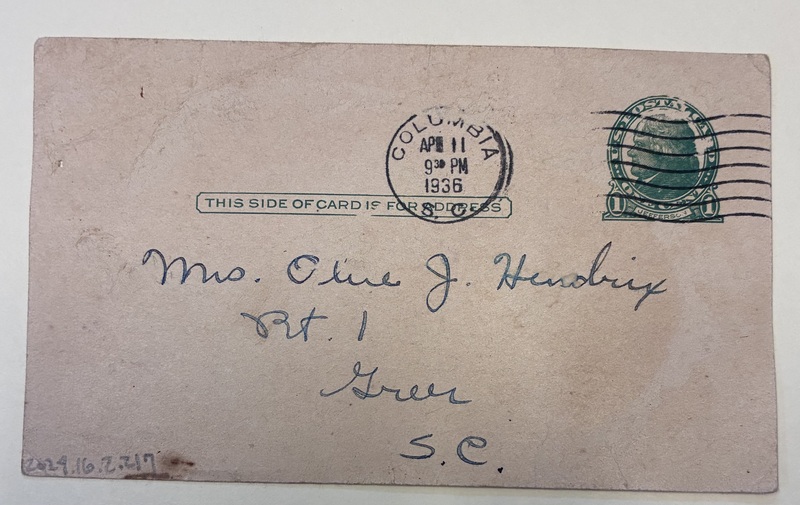 COLUMBIA
APR 11
9 30 PM
1936
S. C.
U.S. POSTAL CARD
ONE CENT
1 JEFFERSON 1
THIS SIDE OF CARD IS FOR ADDRESS
Mrs. Olive J. Hendrix
Rt. 1
Greer
S.C.
2024.16.2.217